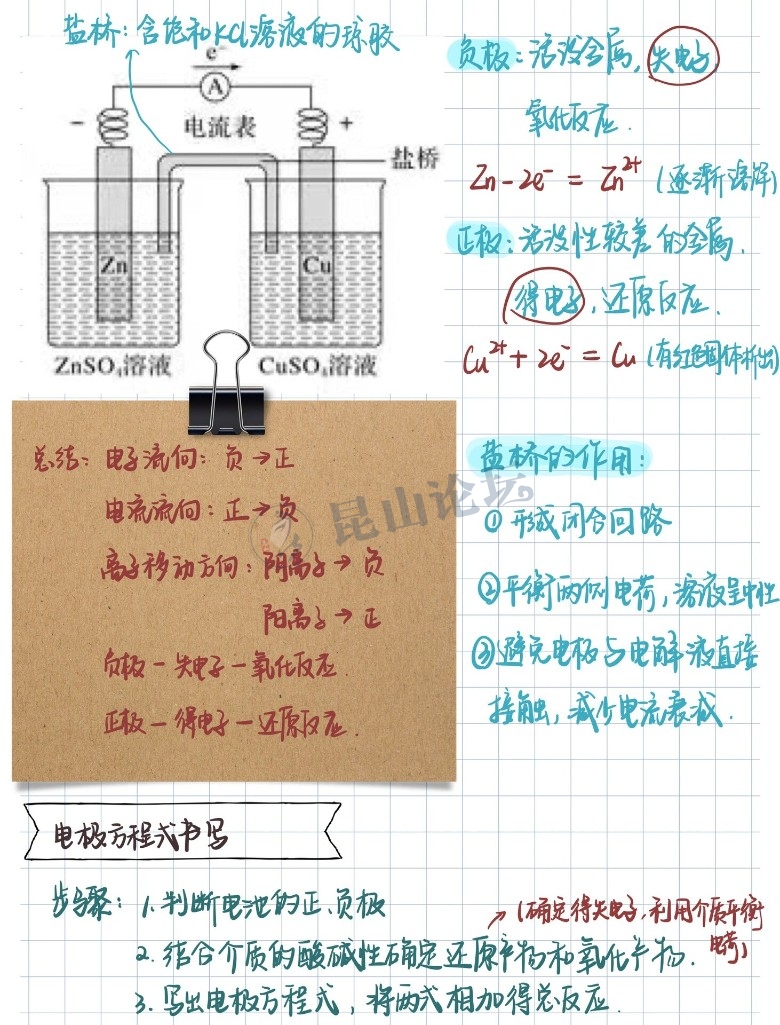 盐桥：含饱和KCl溶液的琼胶
e⁻
A
电流表
−
+
盐桥
Zn
Cu
ZnSO₄溶液
CuSO₄溶液
负极：活泼金属，失电子，
氧化反应．
Zn－2e⁻＝Zn²⁺（逐渐溶解）
正极：活泼性较差的金属．
得电子，还原反应．
Cu²⁺＋2e⁻＝Cu（有红色固体析出）
总结：电子流向：负→正
电流流向：正→负
离子移动方向：阴离子→负
阳离子→正
负极－失电子－氧化反应．
正极－得电子－还原反应．
昆山论坛
盐桥的作用：
①形成闭合回路
②平衡两侧电荷，溶液呈中性
③避免电极与电解液直接
接触，减少电流衰减．
电极方程式书写
步骤：1.判断电池的正、负极
2.结合介质的酸碱性确定还原产物和氧化产物．
（确定得失电子，利用介质平衡
电荷）
3.写出电极方程式，将两式相加得总反应．